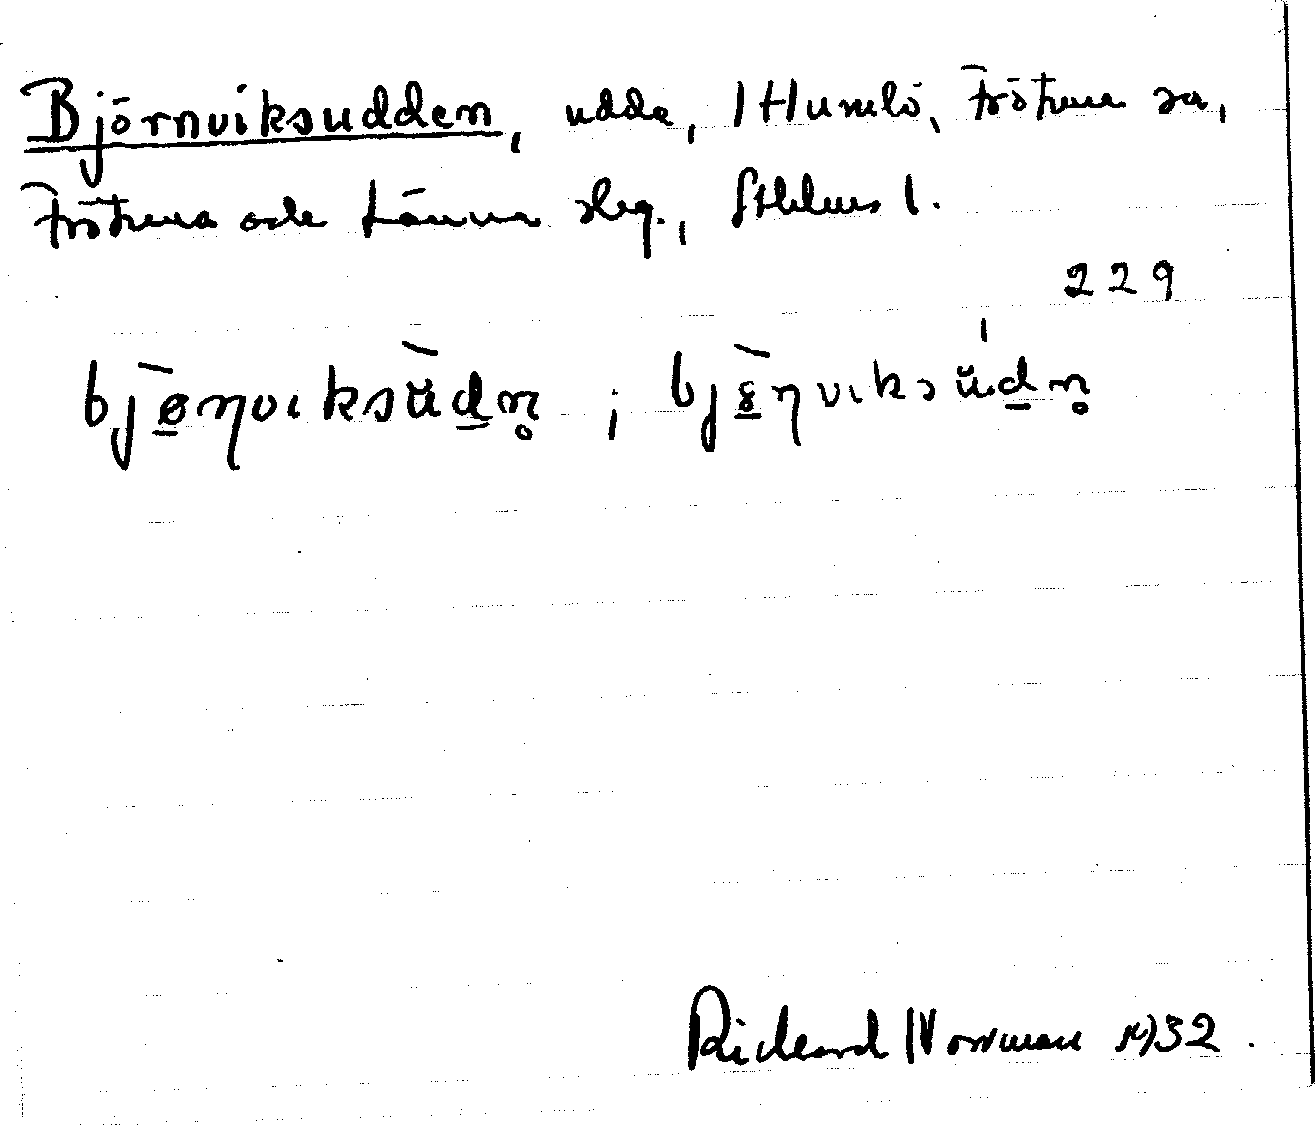 Björnviksudden, udde, Humlö, Frötuna sn,
Frötuna och Länna skg., Sthlms l.
229
bjø̱̀ŋviksŭ̀ḏn̥ ; bj ŋviksŭ̍ḏn̥
Rickard Norrman 1932.